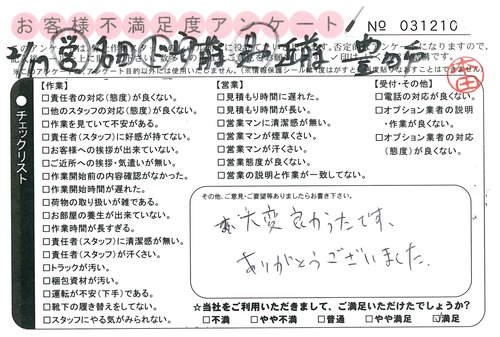 お客様不満足度アンケート
№ 031210
チェックリスト
【作業】
□責任者の対応(態度)が良くない。
□他のスタッフの対応(態度)が良くない。
□作業を見ていて不安がある。
□責任者(スタッフ)に好感が持てない。
□お客様への挨拶が出来ていない。
□ご近所への挨拶・気遣いが無い。
□作業開始前の内容確認がなかった。
□作業開始時間が遅れた。
□荷物の取り扱いが雑である。
□お部屋の養生が出来ていない。
□作業時間が長すぎる。
□責任者(スタッフ)に清潔感が無い。
□責任者(スタッフ)が汗くさい。
□トラックが汚い。
□梱包資材が汚い。
□運転が不安(下手)である。
□靴下の履き替えをしてない。
□スタッフにやる気がみられない。
【営業】
□見積もり時間に遅れた。
□見積もり時間が長い。
□営業マンに清潔感が無い。
□営業マンが煙草くさい。
□営業マンが汗くさい。
□営業態度が良くない。
□営業の説明と作業が一致してない。
【受付・その他】
□電話の対応が良くない。
□オプション業者の説明・作業が良くない。
□オプション業者の対応(態度)が良くない。
その他、ご意見・ご要望等ありましたらお書き下さい。
大変良かったです、
ありがとうございました。
☆当社をご利用いただきまして、ご満足いただけたでしょうか?
□不満 □やや不満 □普通 □やや満足 ☑満足